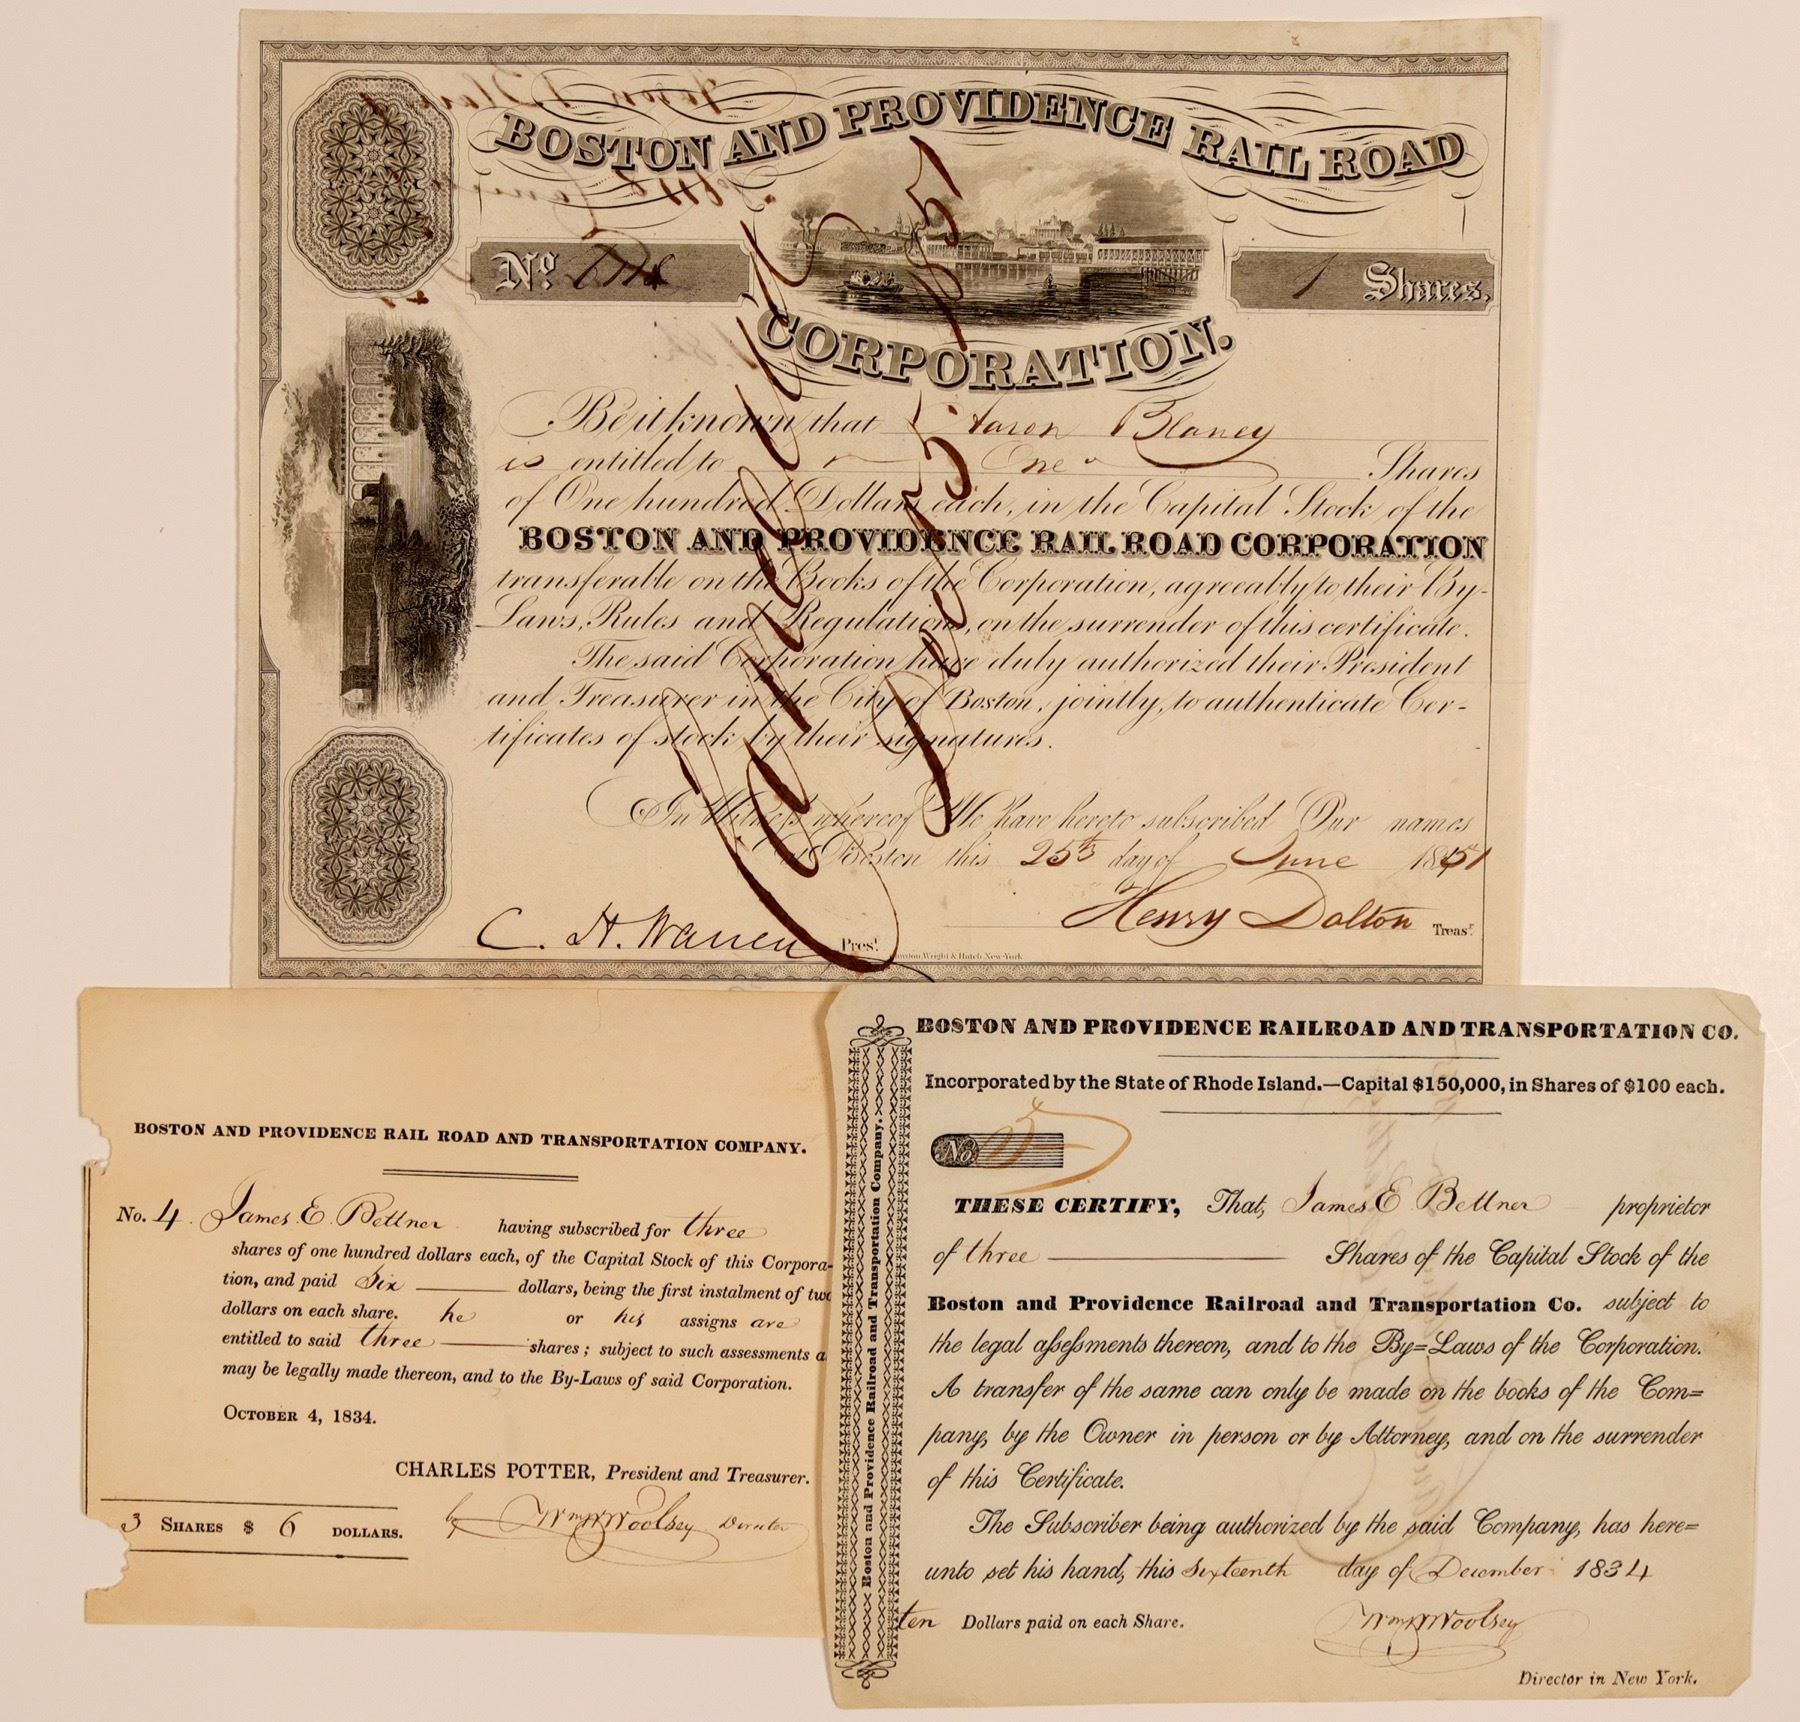 BOSTON AND PROVIDENCE RAIL ROAD
No.
1 Shares,
CORPORATION.
Be it known that Aaron Blaney
is entitled to One Shares
of One hundred Dollars each, in the Capital Stock of the
BOSTON AND PROVIDENCE RAIL ROAD CORPORATION
transferable on the Books of the Corporation, agreeably to their By-
Laws, Rules and Regulations, on the surrender of this certificate.
The said Corporation have duly authorized their President
and Treasurer in the City of Boston, jointly, to authenticate Cer-
tificates of stock by their signatures.
In Witness whereof We have hereto subscribed Our names
at Boston this 25th day of June 1851
C. H. Warren Prest.
Henry Dalton Treasr.
Wright & Hatch New-York
Cancelled
1851
BOSTON AND PROVIDENCE RAIL ROAD AND TRANSPORTATION COMPANY.
No. 4. James E. Bettner having subscribed for three
shares of one hundred dollars each, of the Capital Stock of this Corpora-
tion, and paid Six dollars, being the first instalment of two
dollars on each share. he or his assigns are
entitled to said three shares; subject to such assessments a
may be legally made thereon, and to the By-Laws of said Corporation.
OCTOBER 4, 1834.
CHARLES POTTER, President and Treasurer.
3 SHARES $ 6 DOLLARS.
by Wm W Woolsey Director
Boston and Providence Railroad and Transportation Company.
Boston and Providence Railroad and Transportation Company,
BOSTON AND PROVIDENCE RAILROAD AND TRANSPORTATION CO.
Incorporated by the State of Rhode Island.—Capital $150,000, in Shares of $100 each.
No 5
THESE CERTIFY, That, James E Bettner proprietor
of three Shares of the Capital Stock of the
Boston and Providence Railroad and Transportation Co. subject to
the legal assessments thereon, and to the By=Laws of the Corporation.
A transfer of the same can only be made on the books of the Com=
pany, by the Owner in person or by Attorney, and on the surrender
of this Certificate.
The Subscriber being authorized by the said Company, has here=
unto set his hand, this Sixteenth day of December 1834
ten Dollars paid on each Share.
Wm W Woolsey
Director in New York.